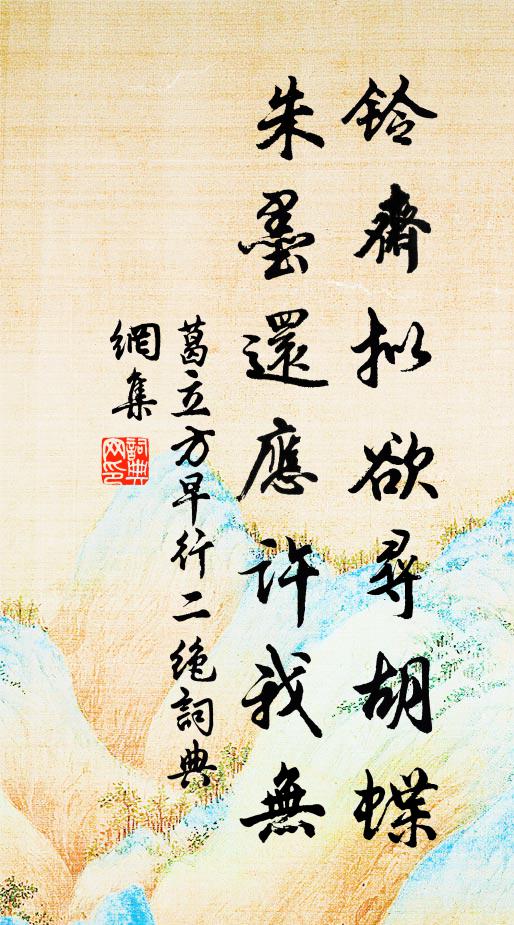 鈴齋拟欲尋胡蝶
朱墨還應許我無
葛立方早行二绝詞典
網集
詞典
网印